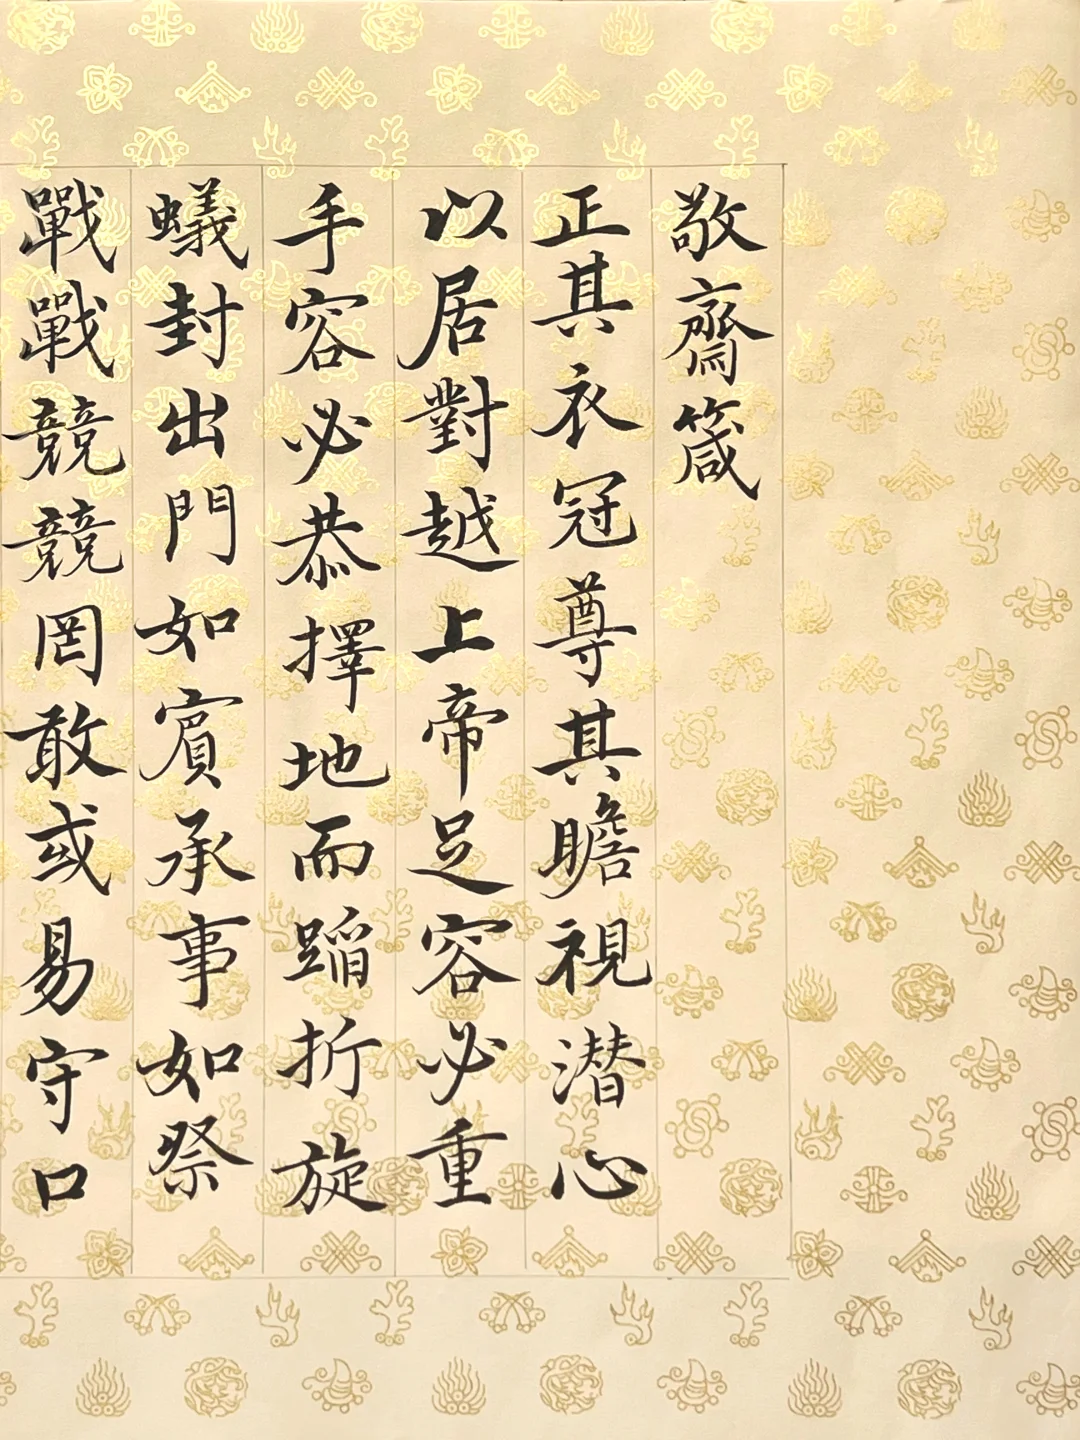 敬齋箴
正其衣冠尊其瞻視潜心
以居對越上帝足容必重
手容必恭擇地而蹈折旋
蟻封出門如賓承事如祭
戰戰兢兢罔敢或易守口